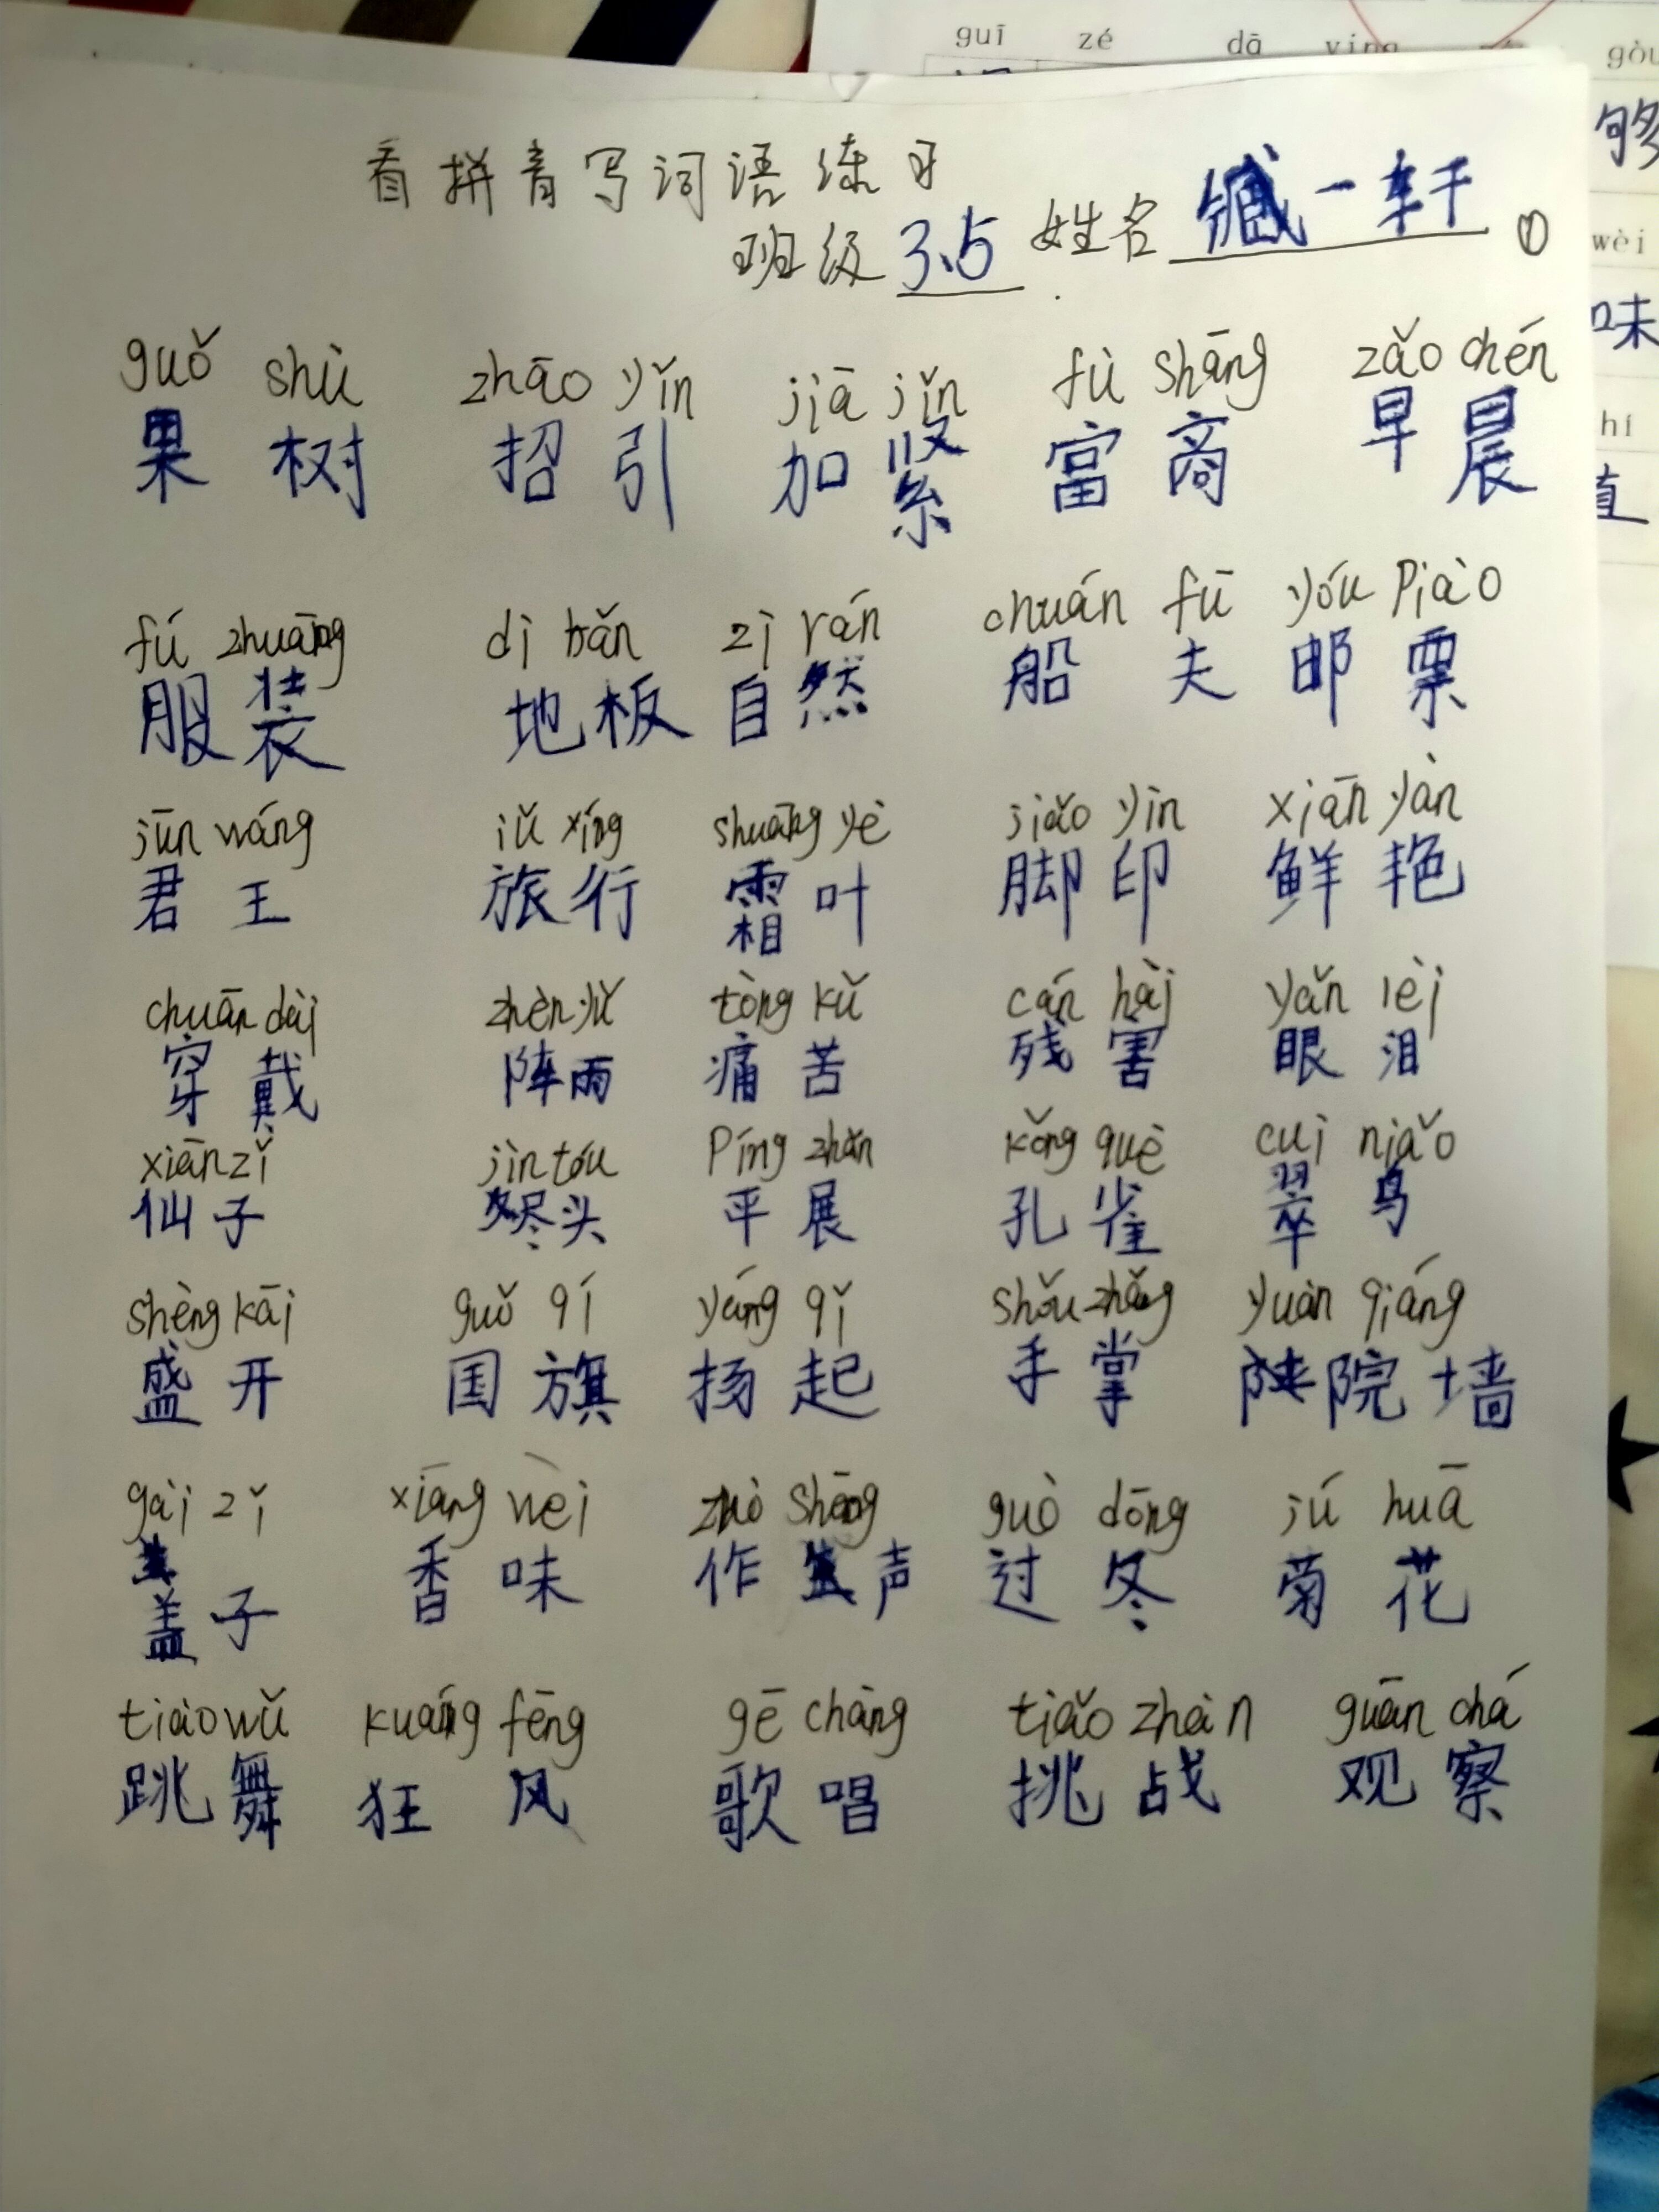 guī zé dā yìng gòu
够
看拼音写词语练习
班级 3.5 姓名 臧一轩 ①
wèi
味
guǒ shù zhāo yǐn jiā jǐn fù shāng zǎo chén
果树 招引 加紧 富商 早晨
hí
直
fú zhuāng dì bǎn zì rán chuán fū yóu piào
服装 地板 自然 船夫 邮票
jūn wáng lǚ xíng shuāng yè jiǎo yìn xiān yàn
君王 旅行 霜叶 脚印 鲜艳
chuān dài zhèn yǔ tòng kǔ cán hài yǎn lèi
穿戴 阵雨 痛苦 残害 眼泪
xiān zǐ jìn tóu píng zhǎn kǒng què cuì niǎo
仙子 尽头 平展 孔雀 翠鸟
shèng kāi guǒ qí yáng qǐ shǒu zhǎng yuàn qiáng
盛开 国旗 扬起 手掌 院墙
gài zǐ xiāng wèi zuò shēng guò dōng jú huā
盖子 香味 作声 过冬 菊花
tiào wǔ kuáng fēng gē chàng tiǎo zhàn guān chá
跳舞 狂风 歌唱 挑战 观察